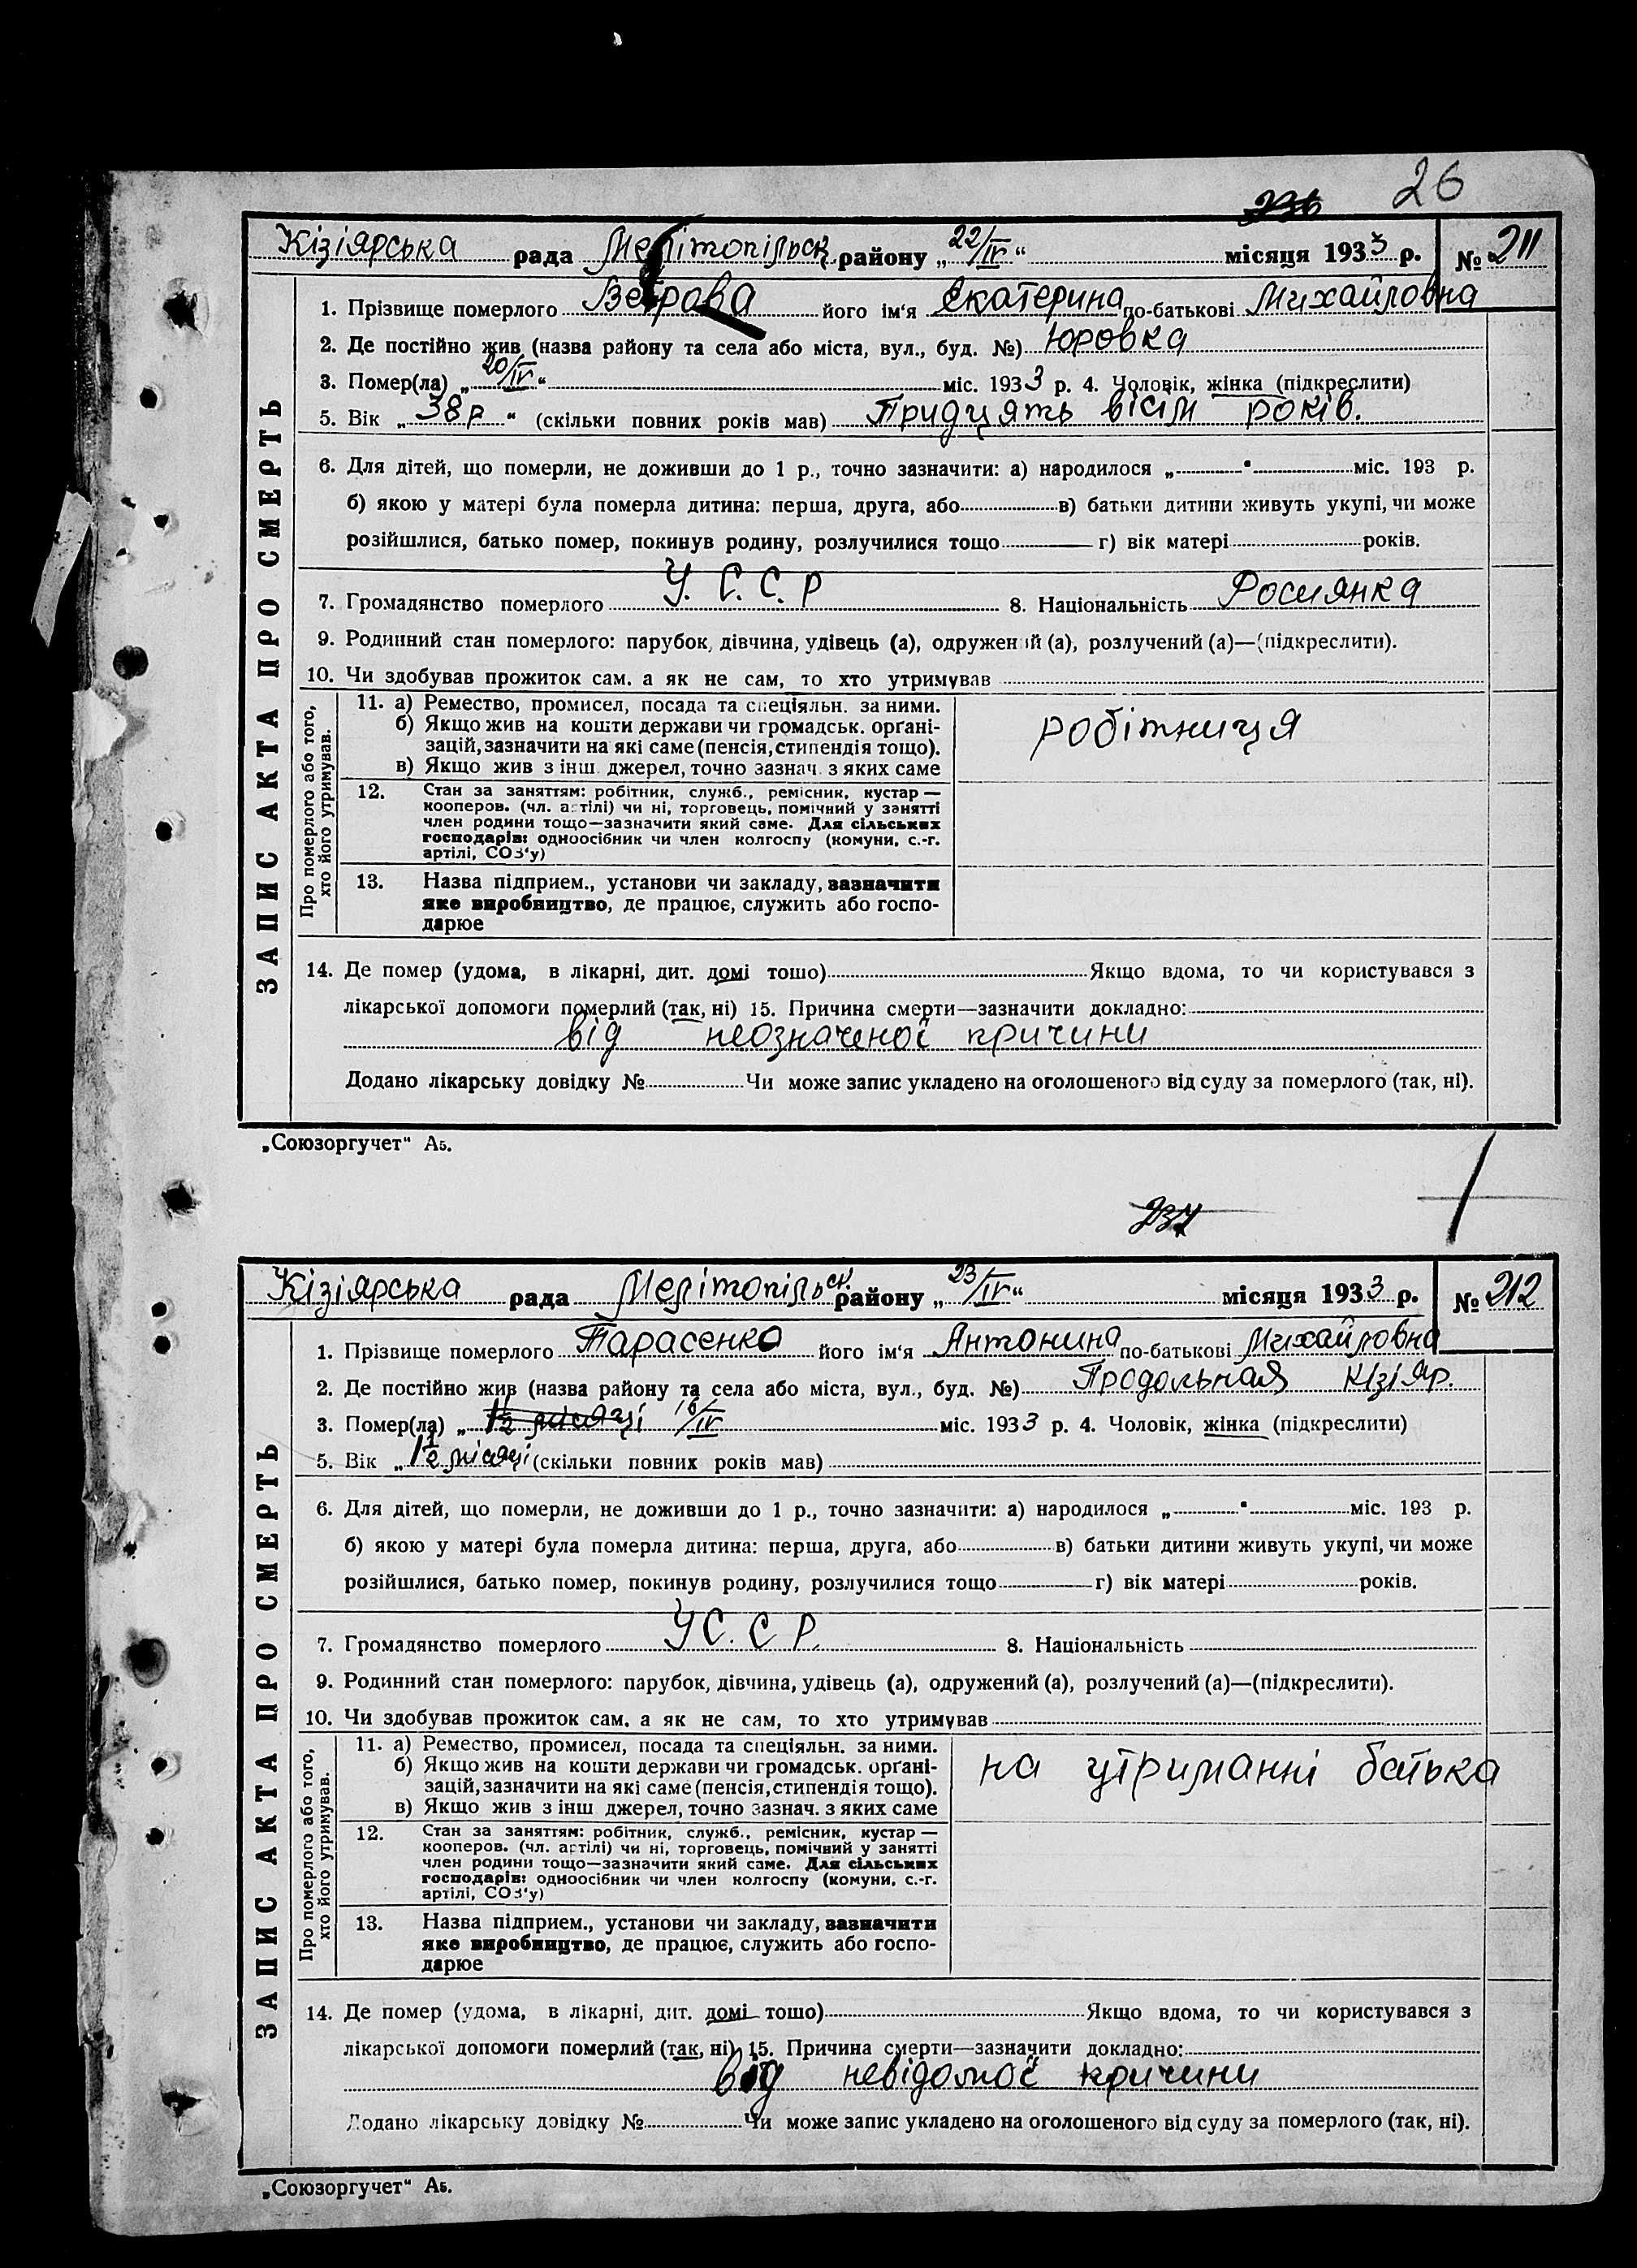 26
236
Кізіярська рада Мелітопільск. району „22/IV“ місяця 1933 р. № 211
1. Прізвище померлого Ветрова його ім'я Екатерина по-батькові Михайловна
2. Де постійно жив (назва району та села або міста, вул., буд. №) Юровка
3. Помер(ла) „20/IV“ міс. 1933 р. 4. Чоловік, жінка (підкреслити)
5. Вік „38 р“ (скільки повних років мав) Тридцять вісім років.
6. Для дітей, що померли, не доживши до 1 р., точно зазначити: а) народилося „ “ міс. 193 р.
б) якою у матері була померла дитина: перша, друга, або в) батьки дитини живуть укупі, чи може
розійшлися, батько помер, покинув родину, розлучилися тощо г) вік матері років.
7. Громадянство померлого У. С. С. Р 8. Національність Росиянка
9. Родинний стан померлого: парубок, дівчина, удівець (а), одружений (а), розлучений (а)—(підкреслити).
10. Чи здобував прожиток сам, а як не сам, то хто утримував
ЗАПИС АКТА ПРО СМЕРТЬ
Про померлого або того,
хто його утримував.
11. а) Ремество, промисел, посада та спеціяльн. за ними.
б) Якщо жив на кошти держави чи громадськ. орґані-
зацій, зазначити на які саме (пенсія, стипендія тощо).
в) Якщо жив з інш. джерел, точно зазнач. з яких саме
робітниця
12. Стан за заняттям: робітник, служб., ремісник, кустар —
кооперов. (чл. артілі) чи ні, торговець, помічний у занятті
член родини тощо—зазначити який саме. Для сільських
господарів: одноосібник чи член колгоспу (комуни, с.-г.
артілі, СОЗ'у)
13. Назва підприєм., установи чи закладу, зазначити
яке виробництво, де працює, служить або госпо-
дарює
14. Де помер (удома, в лікарні, дит. домі тошо) Якщо вдома, то чи користувався з
лікарської допомоги померлий (так, ні) 15. Причина смерти—зазначити докладно:
від неозначеної причини
Додано лікарську довідку № Чи може запис укладено на оголошеного від суду за померлого (так, ні).
„Союзоргучет“ А5.
237
Кізіярська рада Мелітопільськ. району „23/IV“ місяця 1933 р. № 212
1. Прізвище померлого Тарасенко його ім'я Антонина по-батькові Михайловна
2. Де постійно жив (назва району та села або міста, вул., буд. №) Продольная Кізіяр.
3. Помер(ла) „1½ місяці 16/IV міс. 1933 р. 4. Чоловік, жінка (підкреслити)
5. Вік „1½ місяці (скільки повних років мав)
6. Для дітей, що померли, не доживши до 1 р., точно зазначити: а) народилося „ “ міс. 193 р.
б) якою у матері була померла дитина: перша, друга, або в) батьки дитини живуть укупі, чи може
розійшлися, батько помер, покинув родину, розлучилися тощо г) вік матері років.
7. Громадянство померлого У С. С Р. 8. Національність
9. Родинний стан померлого: парубок, дівчина, удівець (а), одружений (а), розлучений (а)—(підкреслити).
10. Чи здобував прожиток сам, а як не сам, то хто утримував
ЗАПИС АКТА ПРО СМЕРТЬ
Про померлого або того,
хто його утримував.
11. а) Ремество, промисел, посада та спеціяльн. за ними.
б) Якщо жив на кошти держави чи громадськ. орґані-
зацій, зазначити на які саме (пенсія, стипендія тощо).
в) Якщо жив з інш джерел, точно зазнач. з яких саме
на утриманні батька
12. Стан за заняттям: робітник, служб., ремісник, кустар —
кооперов. (чл. артілі) чи ні, торговець, помічний у занятті
член родини тощо—зазначити який саме. Для сільських
господарів: одноосібник чи член колгоспу (комуни, с.-г.
артілі, СОЗ'у)
13. Назва підприєм., установи чи закладу, зазначити
яке виробництво, де працює, служить або госпо-
дарює
14. Де помер (удома, в лікарні, дит. домі тошо) Якщо вдома, то чи користувався з
лікарської допомоги померлий (так, ні) 15. Причина смерти—зазначити докладно:
від невідомої причини
Додано лікарську довідку № Чи може запис укладено на оголошеного від суду за померлого (так, ні).
„Союзоргучет“ А5.